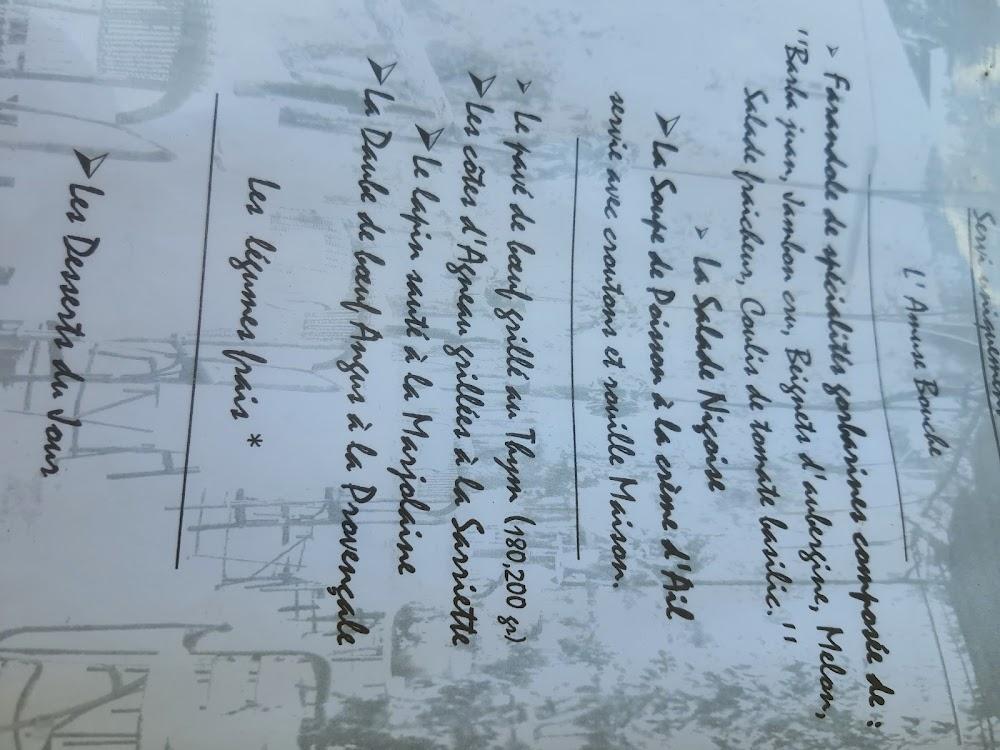 Servi uniquement
L' Amuse Bouche
➢ Farandole de spécialités gorbarines composée de :
"Barba juan, Jambon cru, Beignets d'aubergine, Melon,
Salade fraicheur, Coulis de tomate basilic."
➢ La Salade Niçoise
➢ La Soupe de Poisson à la crème d'Ail
servie avec croutons et rouille Maison.
➢ Le pavé de bœuf grillé au Thym (180,200 gr)
➢ Les côtes d'Agneau grillées à la Sarriette
➢ Le lapin sauté à la Marjolaine
➢ La Daube de bœuf Angus à la Provençale
Les légumes frais *
➢ Les Desserts du Jour